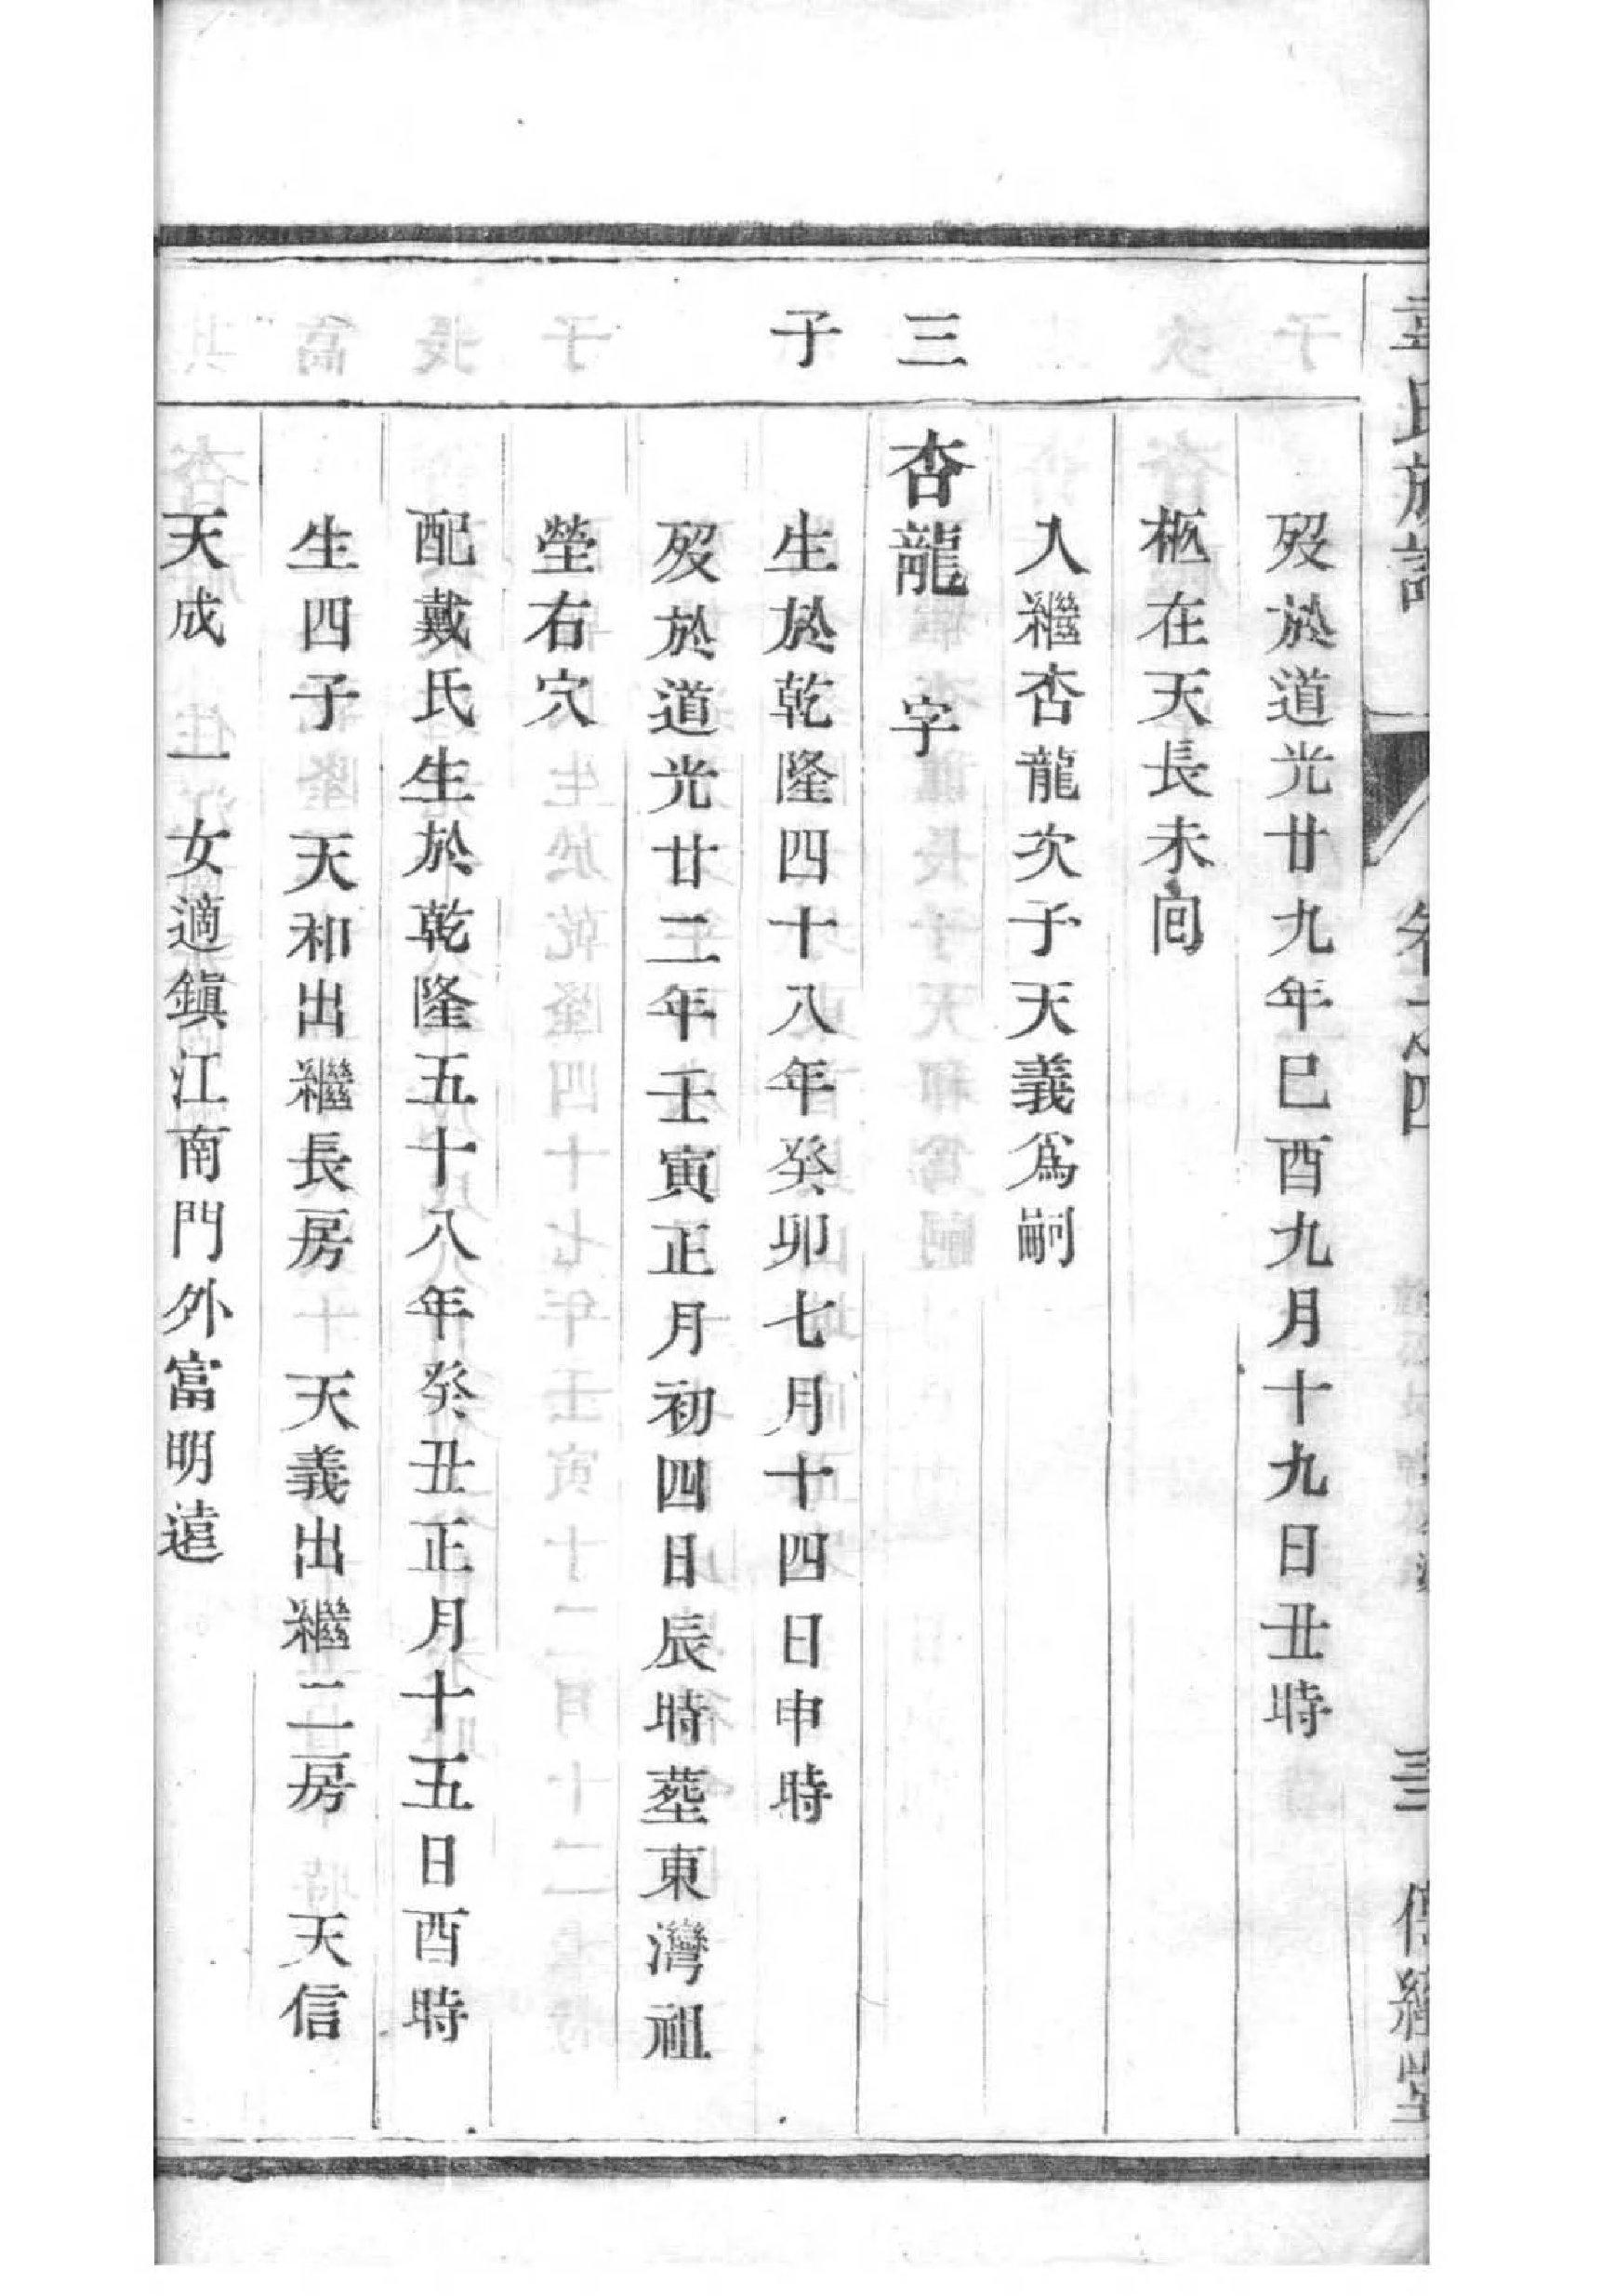 氏族譜 卷之四 三 傳經堂
歿於道光廿九年巳酉九月十九日丑時
柩在天長未囘
入繼杏龍次子天義爲嗣
三
杏龍 字
子
生於乾隆四十八年癸卯七月十四日申時
歿於道光廿二年壬寅正月初四日辰時塟東灣祖
塋右穴
配戴氏生於乾隆五十八年癸丑正月十五日酉時
生四子 天和出繼長房 天義出繼二房 天信
天成 一女適鎭江南門外富明遠